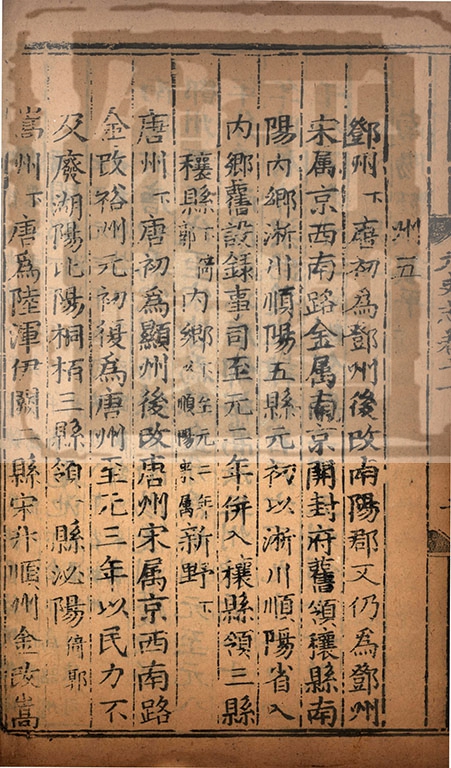 州五
鄧州下唐初為鄧州後改南陽郡又仍為鄧州
宋属京西南路金属南京開封府舊領穰縣南
陽内郷淅川順陽五縣元初以淅川順陽省入
内郷舊設錄事司至元二年併入穰縣領三縣
穰縣下倚郭内郷下至元二年以順陽来属新野下
唐州下唐初為顯州後改唐州宋属京西南路
金改裕州元初復為唐州至元三年以民力不
及廢湖陽比陽桐栢三縣領一縣泌陽倚郭
嵩州下唐為陸渾伊闕二縣宋升順州金改嵩